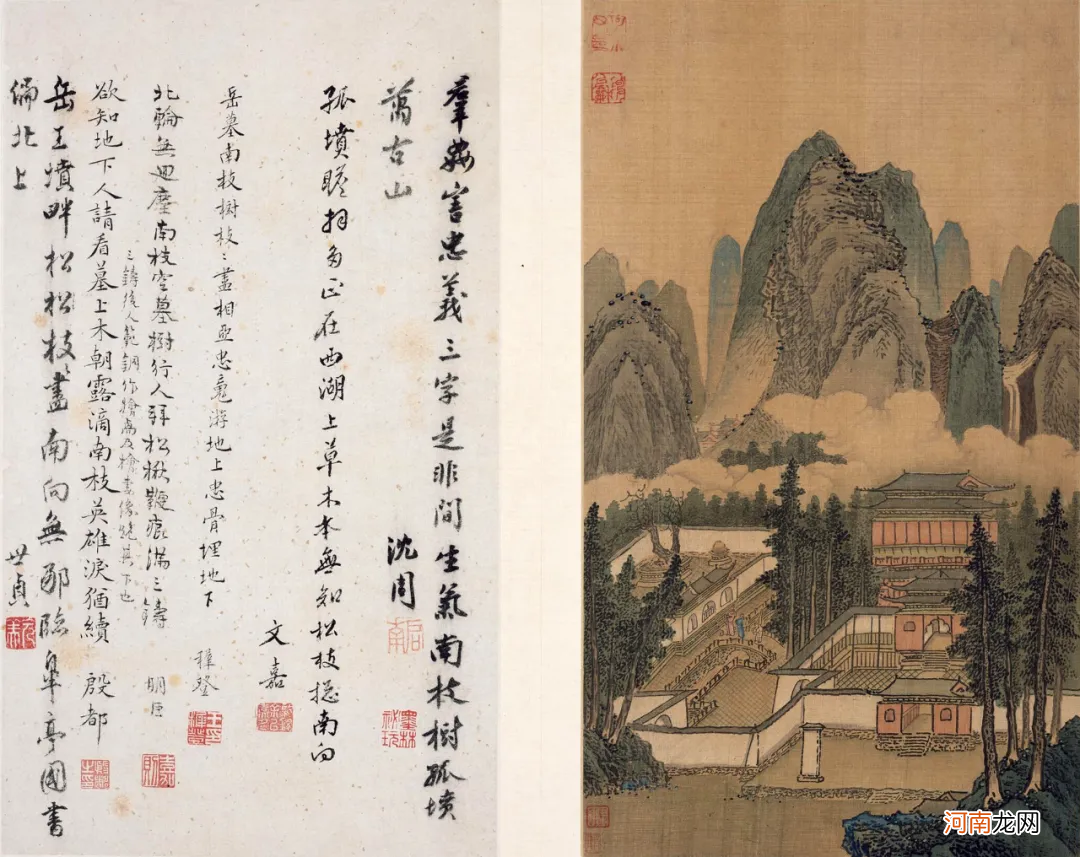 羣姦害忠義三字是非間生氣南枝樹孤墳
萬古山
沈周
孤墳瞻拜多正在西湖上草木本無知松枝揔南向
文嘉
岳墓南枝樹枝〻盡相亞忠魂游地上忠骨埋地下
穉登
北轅無迴塵南枝空墓樹行人拜松楸鞭痕滿三鑄
三鑄後人範銅作檜卨及檜妻像繞其下也
明臣
欲知地下人請看墓上木朝露滴南枝英雄淚猶續
殷都
岳王墳畔松松枝盡南向無那臨皐亭國書
偏北上
世貞
河南龙网